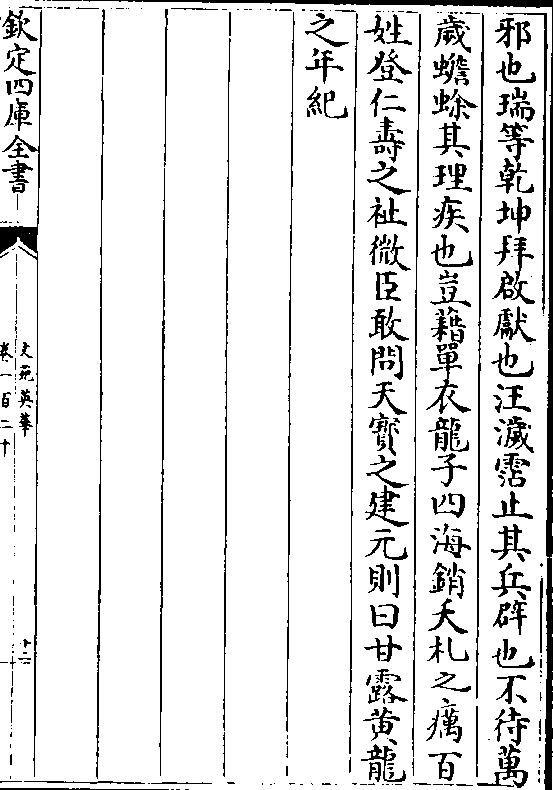 邪也瑞等乾坤拜啟獻也汪濊霑止其兵辟也不待萬
歲蟾蜍其理疾也豈藉單衣龍子四海銷夭札之癘百
姓登仁壽之祉微臣敢問天寳之建元則曰甘露黄龍
之年紀
欽定四庫全書
文苑英華
卷一百二十
十二